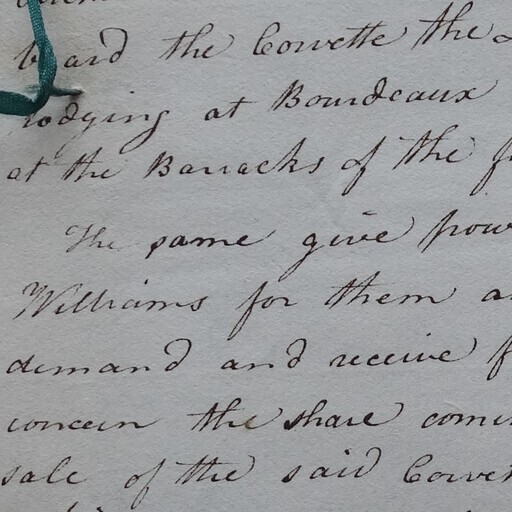 board the Corvette the
lodging at Bourdeaux
at the Barracks of the
The same give pow
Williams for them a
demand and receive f
concern the share comi
sale of the said Corvet